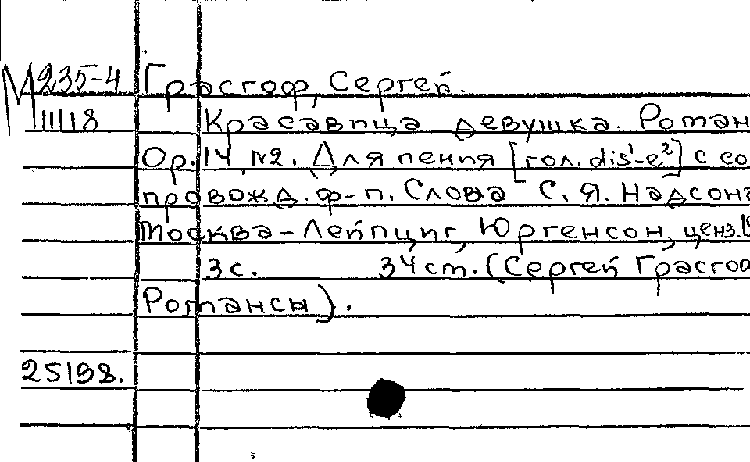 М 235-4 Грасгоф, Сергей.
11118 Красавица девушка. Роман
Op. 14, N2. Для пения [гол. dis¹-e²] с со
провожд. ф-п. Слова С. Я. Надсона
Москва-Лейпциг, Юргенсон, ценз.
3 с. 34 ст. (Сергей Грасгоф
Романсы).
25198.